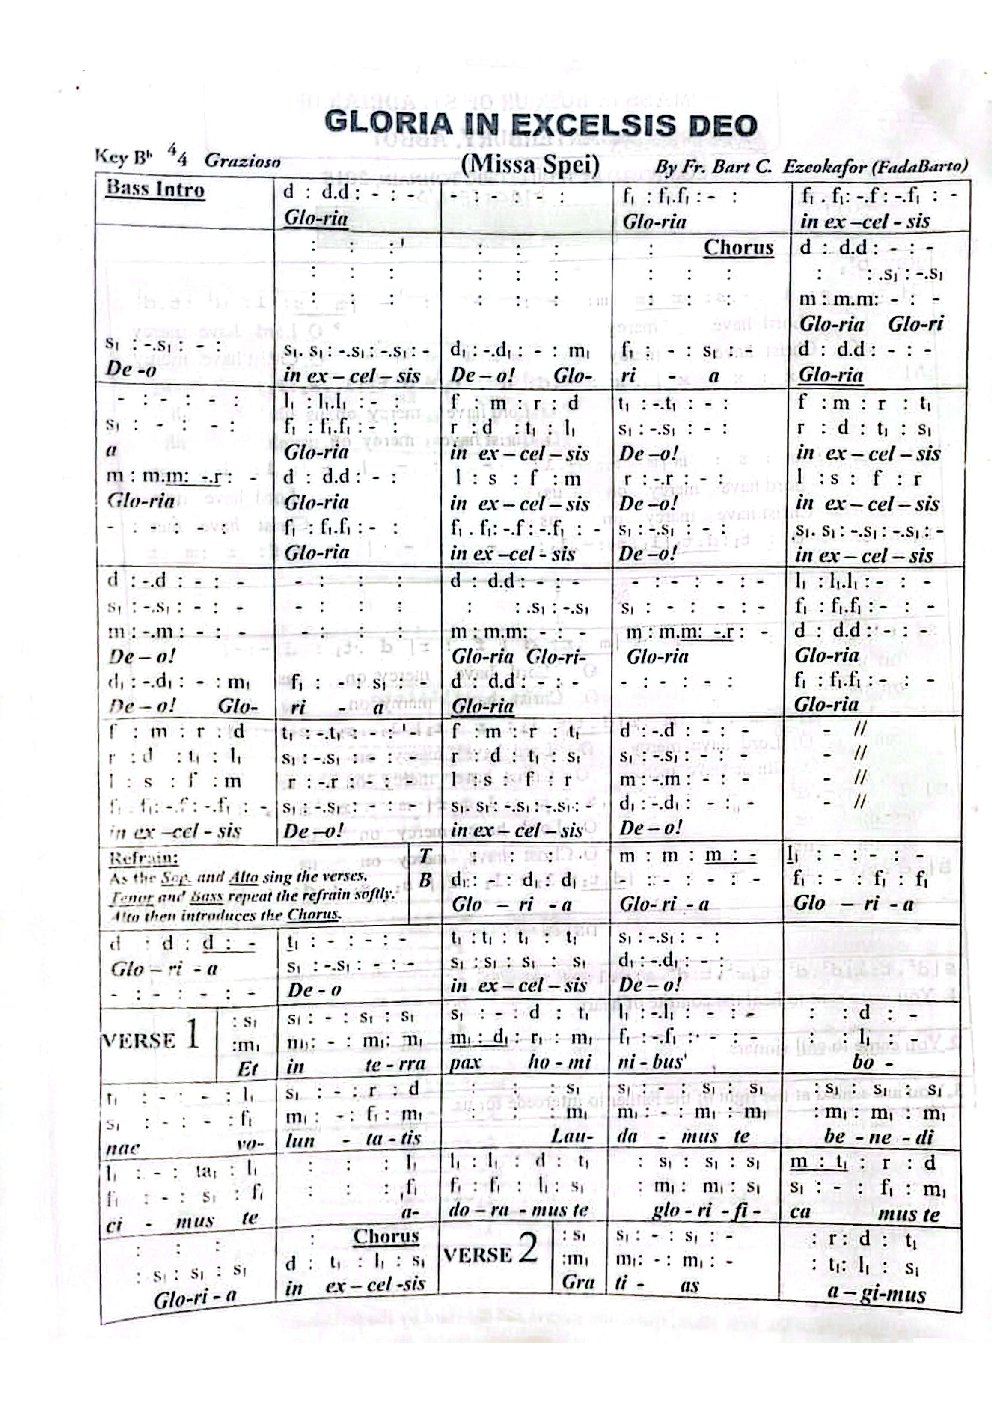 GLORIA IN EXCELSIS DEO
Key Bᵇ 4/4 Grazioso (Missa Spei) By Fr. Bart C. Ezeokafor (FadaBarto)
Bass Intro d : d.d : - : - - : - : - : f₁ : f₁.f₁ : - : f₁ . f₁: -.f : -.f₁ : -
Glo-ria Glo-ria in ex –cel - sis
: : : : : : : Chorus d : d.d : - : -
: : : : : : : : : : : .s₁ : -.s₁
: : : : : : : : : m : m.m: - : -
Glo-ria Glo-ri
s₁ : -.s₁ : - : s₁. s₁ : -.s₁: -.s₁ : - d₁ : -.d₁ : - : m₁ f₁ : - : s₁ : - d : d.d : - : -
De -o in ex – cel – sis De – o! Glo- ri - a Glo-ria
- : - : - : - l₁ : l₁.l₁ : - : f : m : r : d t₁ : -.t₁ : - : f : m : r : t₁
s₁ : - : - : f₁ : f₁.f₁ : - : r : d : t₁ : l₁ s₁ : -.s₁ : - : r : d : t₁ : s₁
a Glo-ria in ex – cel – sis De –o! in ex – cel – sis
m : m.m: -.r : - d : d.d : - : l : s : f : m r : -.r : - : l : s : f : r
Glo-ria Glo-ria in ex – cel – sis De –o! in ex – cel – sis
- : - : - : - f₁ : f₁.f₁ : - : f₁ . f₁: -.f : -.f₁ : - s₁ : -.s₁ : - : s₁. s₁ : -.s₁ : -.s₁ : -
Glo-ria in ex –cel - sis De –o! in ex – cel – sis
d : -.d : - : - - : : : d : d.d : - : - - : - : - : - l₁ : l₁.l₁ : - : -
s₁ : -.s₁ : - : - - : : : : : .s₁ : -.s₁ s₁ : - : - : - f₁ : f₁.f₁ : - : -
m : -.m : - : - - : : : m : m.m: - : - m : m.m: -.r : - d : d.d : - : -
De – o! Glo-ria Glo-ri- Glo-ria Glo-ria
d₁ : -.d₁ : - : m₁ f₁ : - : s₁ : - d : d.d : - : - - : - : - : f₁ : f₁.f₁ : - : -
De – o! Glo- ri - a Glo-ria Glo-ria
f : m : r : d t₁ : -.t₁ : - : - f : m : r : t₁ d : -.d : - : - - //
r : d : t₁ : l₁ s₁ : -.s₁ : - : - r : d : t₁ : s₁ s₁ : -.s₁ : - : - - //
l : s : f : m r : -.r : - : l : s : f : r m : -.m : - : - - //
f₁ . f₁: -.f : -.f₁ : - s₁ : -.s₁ : - : - s₁. s₁ : -.s₁ : -.s₁ : - d₁ : -.d₁ : - : - - //
in ex –cel - sis De –o! in ex – cel – sis De – o!
Refrain: T : : : m : m : m : - l₁ : - : - : -
As the Sop. and Alto sing the verses, B d₁ : - : d₁ : d₁ - : - : - : - f₁ : - : f₁ : f₁
Tenor and Bass repeat the refrain softly. Glo – ri - a Glo- ri - a Glo – ri - a
Alto then introduces the Chorus.
d : d : d : - t₁ : - : - : - t₁ : t₁ : t₁ : t₁ s₁ : -.s₁ : - :
Glo – ri - a s₁ : -.s₁ : - : - s₁ : s₁ : s₁ : s₁ d₁ : -.d₁ : - :
- : - : - : - De - o in ex – cel – sis De – o!
VERSE 1 : s₁ s₁ : - : s₁ : s₁ s₁ : - : d : t₁ l₁ : -.l₁ : - : - : : d : -
:m₁ m₁: - : m₁: m₁ m₁ : d₁ : r₁ : m₁ f₁ : -.f₁ : - : - : : l₁ : -
Et in te – rra pax ho - mi ni - bus' bo -
t₁ : - : - : l₁ s₁ : - : r : d : : : s₁ s₁ : - : s₁ : s₁ : s₁ : s₁ : s₁
s₁ : - : - : f₁ m₁ : - : f₁ : m₁ : : : m₁ m₁ : - : m₁ : m₁ : m₁ : m₁ : m₁
nae vo- lun - ta - tis Lau- da - mus te be - ne - di
l₁ : - : ta₁ : l₁ : : : l₁ l₁ : l₁ : d : t₁ : s₁ : s₁ : s₁ m : t₁ : r : d
f₁ : - : s₁ : f₁ : : : f₁ f₁ : f₁ : l₁ : s₁ : m₁ : m₁ : s₁ s₁ : - : f₁ : m₁
ci - mus te a- do – ra - mus te glo - ri - fi - ca mus te
: : : : Chorus VERSE 2 : s₁ s₁ : - : s₁ : - : r : d : t₁
: s₁ : s₁ : s₁ d : t₁ : l₁ : s₁ :m₁ m₁: - : m₁ : - : t₁: l₁ : s₁
Glo-ri - a in ex – cel -sis Gra ti - as a – gi-mus